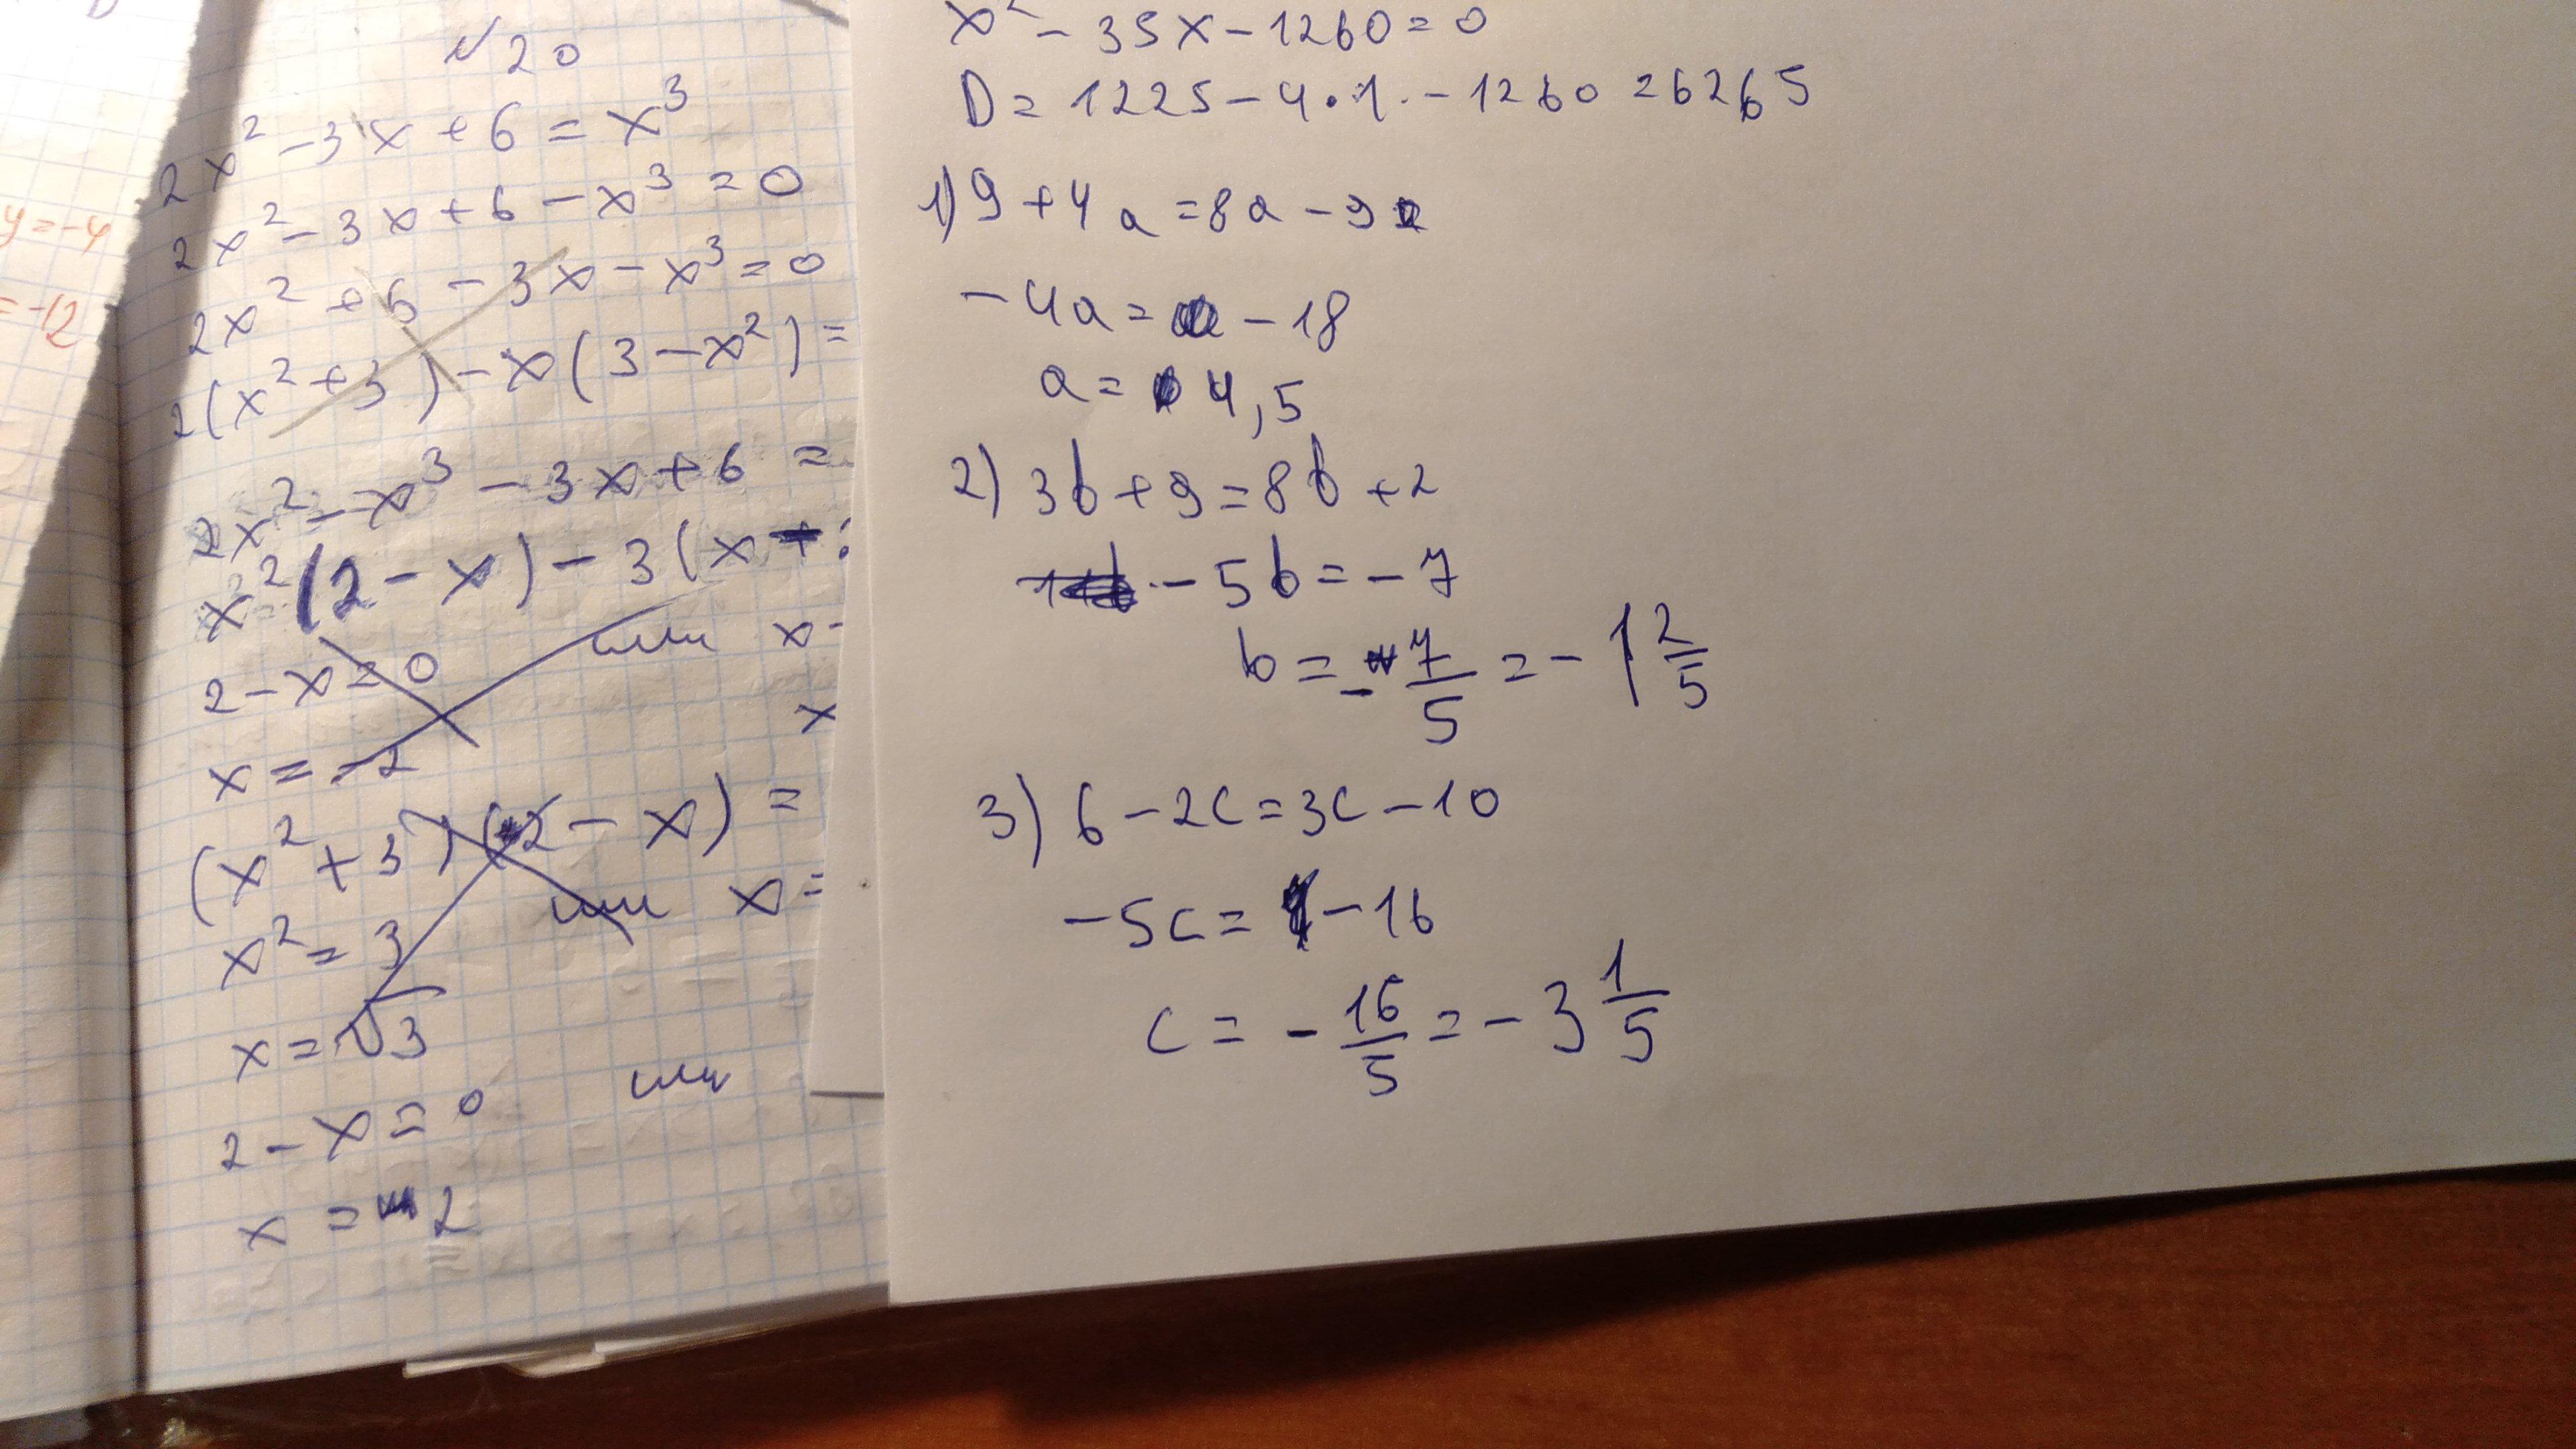 y=-4
=-12
№20
2x²-3x+6=x³
2x²-3x+6-x³=0
2x²+6-3x-x³=0
2(x²+3)-x(3-x²)=
2x²-x³-3x+6=
x²(2-x)-3(x
2-x=0 или x-
x=-2 x
(x²+3)(2-x)=
x²=3 или x=
x=√3
2-x=0 или
x=2
x²-35x-1260=0
D=1225-4·1·-1260=6265
1) 9+4a=8a-9
-4a=-18
a=4,5
2) 3b+9=8b+2
-5b=-7
b=-7/5=-1 2/5
3) 6-2c=3c-10
-5c=-16
c=-16/5=-3 1/5